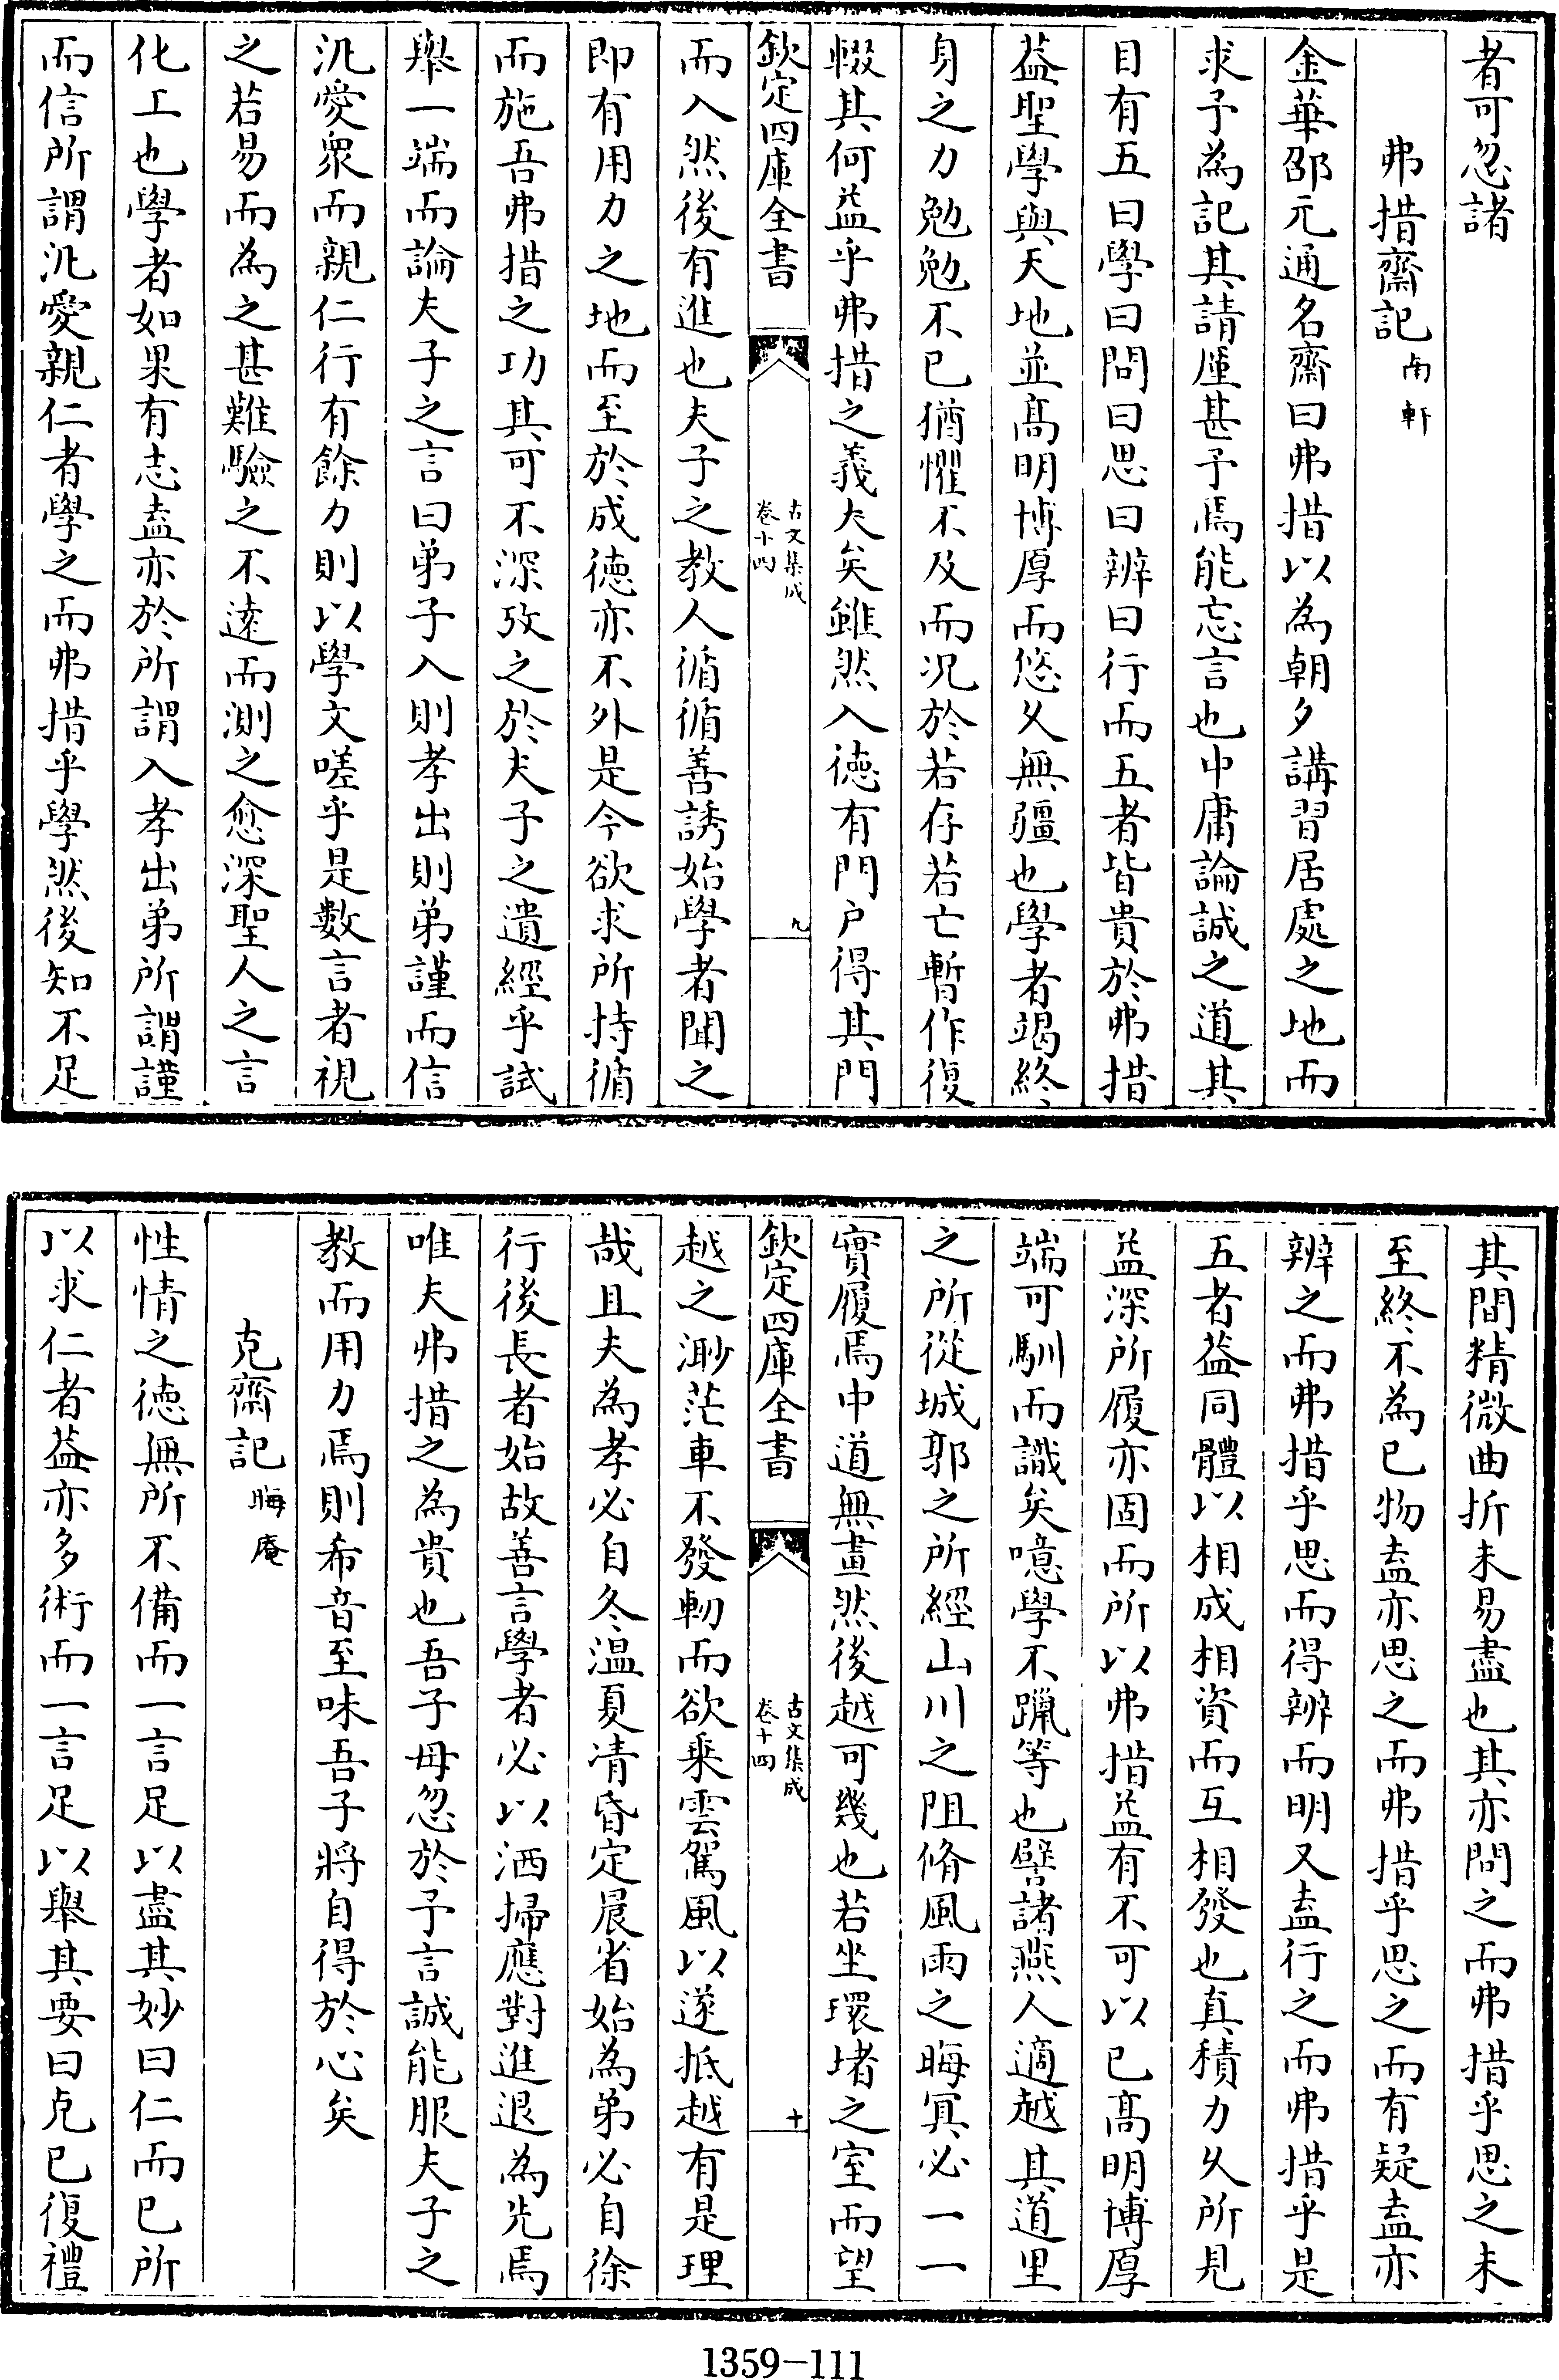 者可忽諸
弗措齋記南軒
金華邵元通名齋曰弗措以為朝夕講習居處之地而
求予為記其請厪甚予焉能忘言也中庸論誠之道其
目有五曰學曰問曰思曰辨曰行而五者皆貴於弗措
葢聖學與天地並髙明博厚而悠久無疆也學者竭終
身之力勉勉不已猶懼不及而况於若存若亡暫作復
輟其何益乎弗措之義大矣雖然入徳有門户得其門
欽定四庫全書
古文集成
卷十四
九
而入然後有進也夫子之教人循循善誘始學者聞之
即有用力之地而至於成徳亦不外是今欲求所持循
而施吾弗措之功其可不深攷之於夫子之遺經乎試
舉一端而論夫子之言曰弟子入則孝出則弟謹而信
汎愛衆而親仁行有餘力則以學文嗟乎是數言者視
之若易而為之甚難驗之不逺而測之愈深聖人之言
化工也學者如果有志盍亦於所謂入孝出弟所謂謹
而信所謂汎愛親仁者學之而弗措乎學然後知不足
其間精微曲折未易盡也其亦問之而弗措乎思之未
至終不為已物盍亦思之而弗措乎思之而有疑盍亦
辨之而弗措乎思而得辨而明又盍行之而弗措乎是
五者葢同體以相成相資而互相發也真積力久所見
益深所履亦固而所以弗措益有不可以已髙明博厚
端可馴而識矣噫學不躐等也譬諸燕人適越其道里
之所從城郭之所經山川之阻脩風雨之晦冥必一一
實履焉中道無畫然後越可幾也若坐環堵之室而望
欽定四庫全書
古文集成
卷十四
十
越之渺茫車不發軔而欲乗雲駕風以遂抵越有是理
哉且夫為孝必自冬温夏凊昏定晨省始為弟必自徐
行後長者始故善言學者必以洒掃應對進退為先焉
唯夫弗措之為貴也吾子毋忽於予言誠能服夫子之
教而用力焉則希音至味吾子將自得於心矣
克齋記晦庵
性情之徳無所不備而一言足以盡其妙曰仁而已所
以求仁者葢亦多術而一言足以舉其要曰克已復禮
1359-111